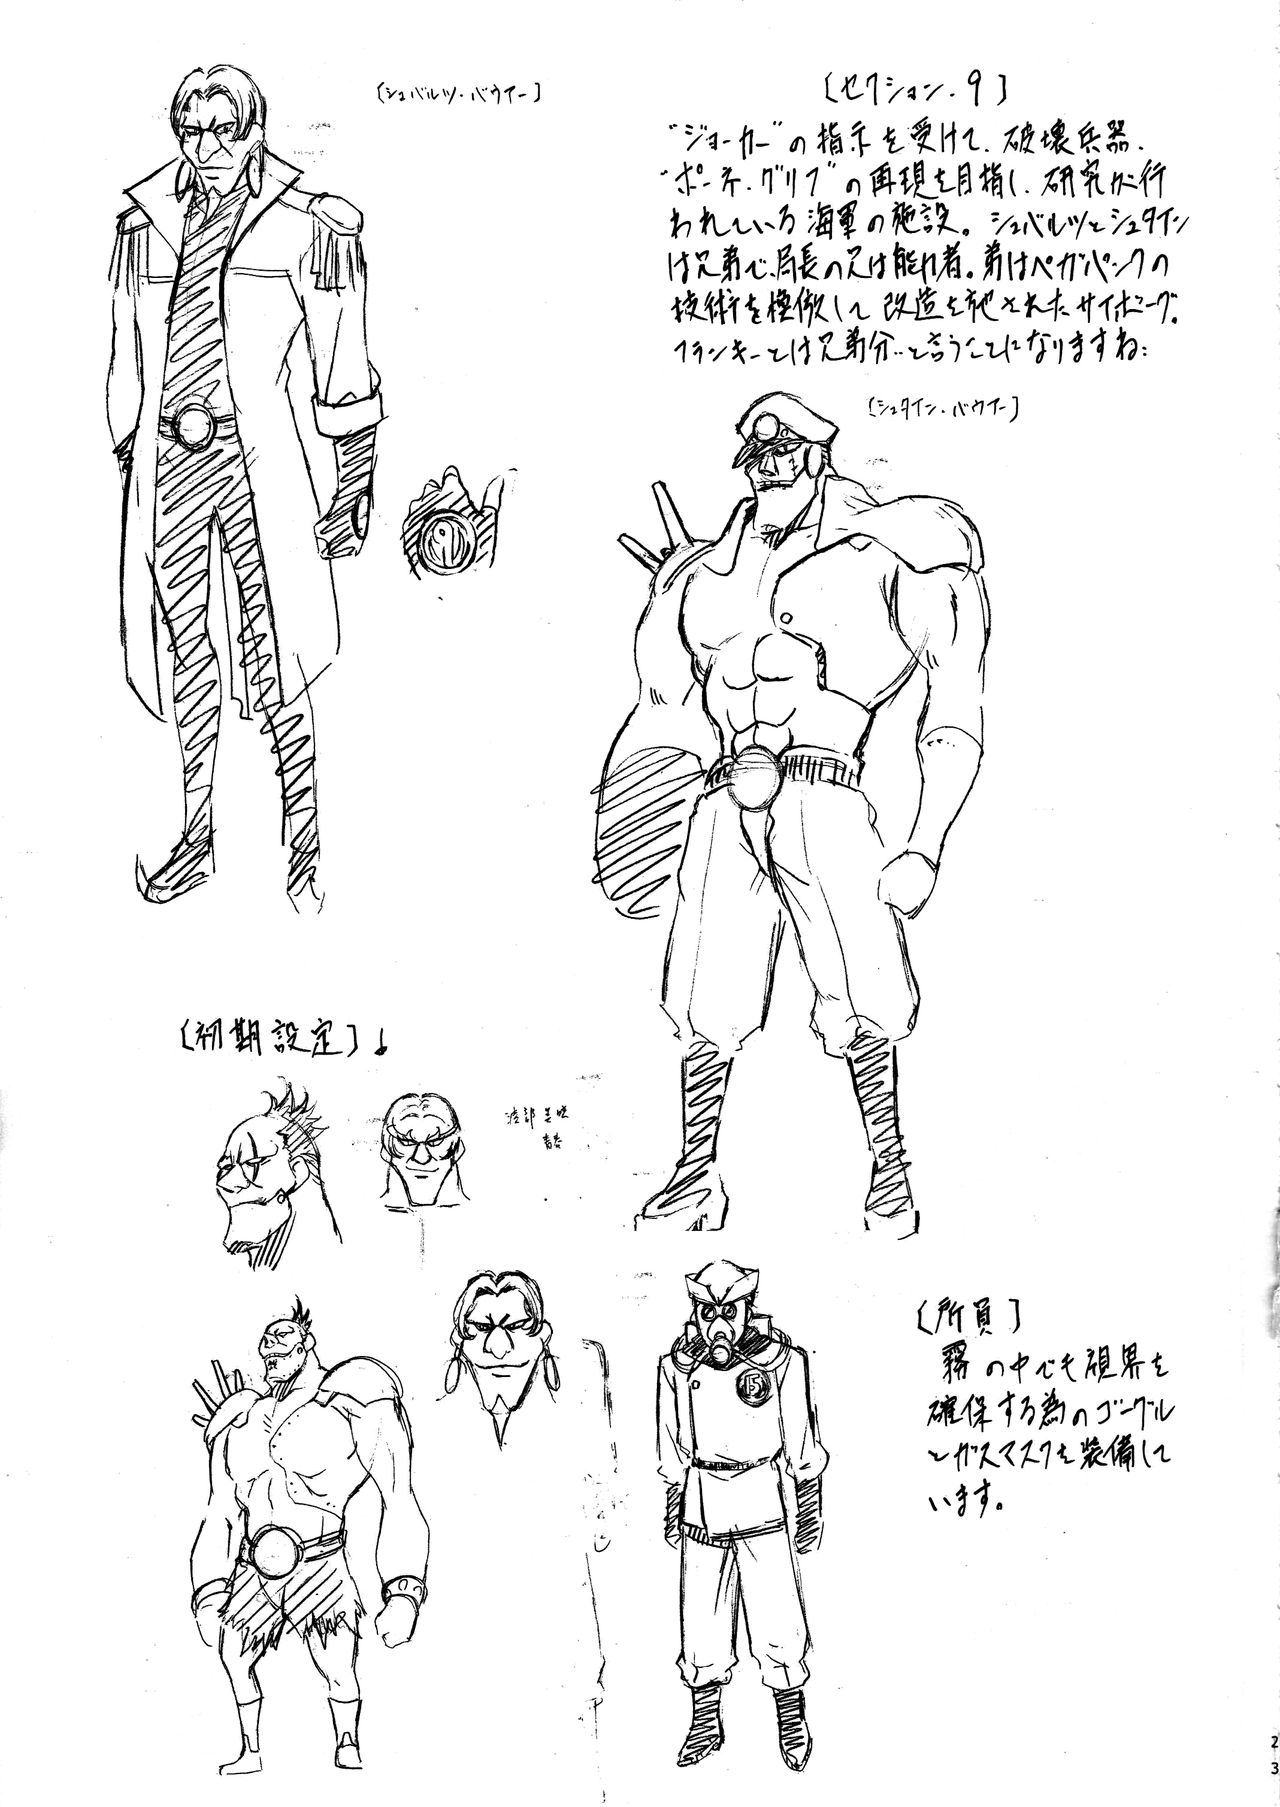 〔シュバルツ・バウアー〕
〔セクション・9〕
“ジョーカー”の指示を受けて、破壊兵器、
“ポーネ・グリフ”の再現を目指し、研究が行
われている海軍の施設。シュバルツとシュタイン
は兄弟で、局長の兄は能力者。弟はベガパンクの
技術を模倣して改造を施されたサイボーグ。
フランキーとは兄弟分…と言うことになりますね…
〔シュタイン・バウアー〕
〔初期設定〕↓
〔所員〕
霧の中でも視界を
確保する為のゴーグル
とガスマスクを装備して
います。
15
23